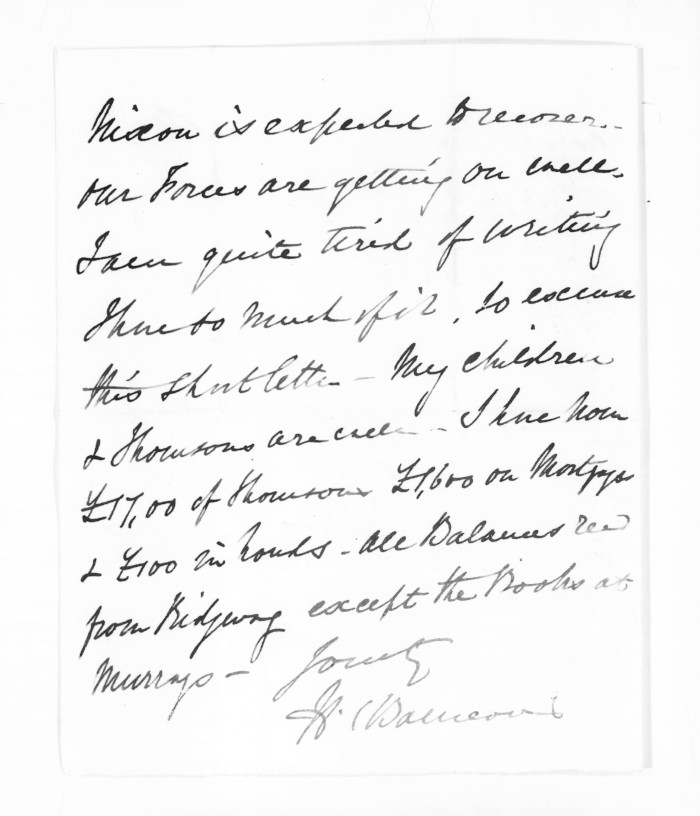 Nixon is expected to recover. -
our Forces are getting on well.
I am quite tired of writing
I have so much of it, so excuse
this short letter - My children
& Thomsons are well - I have now
£17,00 of Thomsons £1,600 on Mortgage
& £100 in hands - All Balances recd
from Ridgway except the Books at
Murrays -
H.